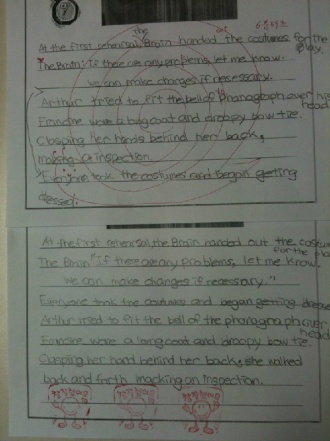 the out
At the first rehearsal, Brain handed the costumes for the
play.
The Brain: If there are any problems, let me know.
we can make changes if necessary.
Arthur tried to fit the bell of phonograph over his
head
Francine wore a long coat and droopy bow tie.
Clasping her hands behind her back,
making a inspection.
Everyone took the costumes and began getting
dressed.
At the first rehearsal, the Brain handed out the costum
for the pla
The Brain "If there are any problems, let me know.
We can make changes if necessary."
Everyone took the costumes and began getting dresse
Arthur tried to fit the bell of the phonograph over
head
Francine wore a long coat and droopy bow tie.
Clasping her hand behind her back, she walked
back and forth macking an inspection.
참 잘했어요 참 잘했어요 참 잘했어요